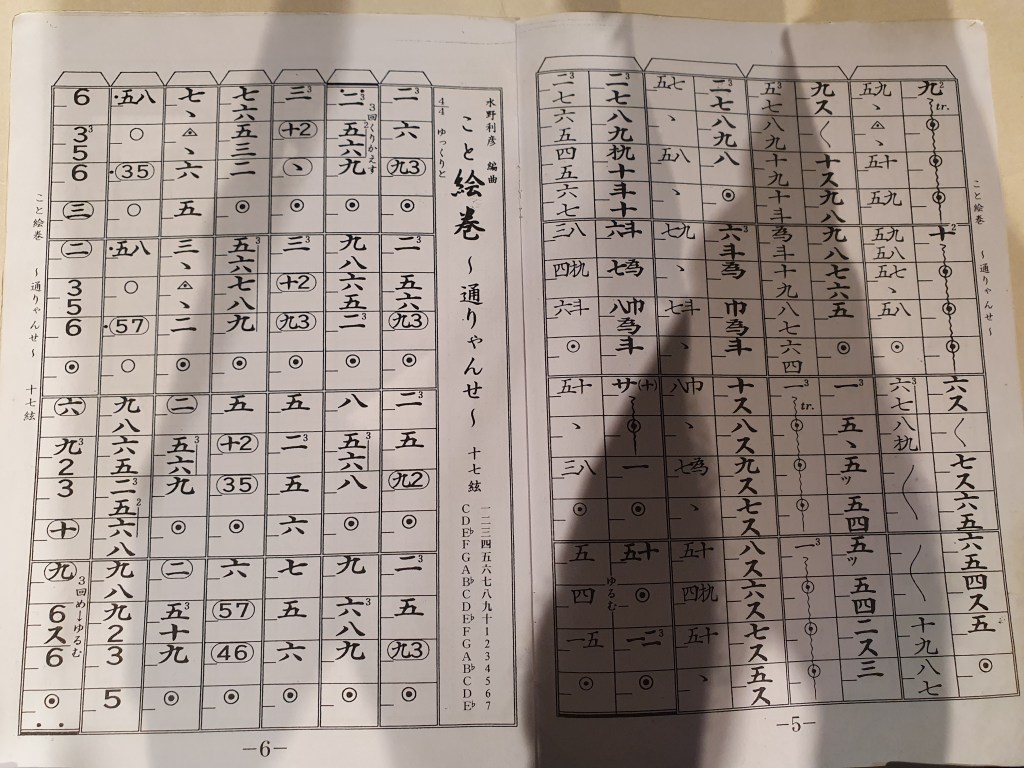 こと絵巻 ～通りゃんせ～
九2 tr. ⦿ ⦿ ⦿ 十2 ⦿ ⦿ ⦿ 六ス く 七ス六五 六五四ス五 ⦿
五九 、 五十 五九 五九 五八 五七 、 五八 ⦿ 六七八杋 十九八七
九ス く 十ス九八 九八七六五 ⦿ 一 五、五ッ五四 五ッ五四二ス三
五3七八九十九十斗 為斗十九八七六四 一3 tr. ⦿ ⦿ ⦿ 一3 ⦿ ⦿ ⦿
二3七八九八 ⦿ 六3斗為巾為斗 十ス八ス九ス七ス 八ス六ス七ス五ス
五七 、 五八 、 七九 、 七斗 、 八巾 、 七為 、 五十 四杋 五十 、
二3七八九杋十斗十 六斗 七為 八巾為斗 サ(十) ⦿ 一 ⦿ 五十 ⦿ 一二3 ⦿
ゆるむ
二3七六五四五六七 三八 四杋 六斗 ⦿ 五十 、 三八 ⦿ 五 四 一五 ⦿
－5－
水野利彦 編曲
こと絵巻 ～通りゃんせ～ 十七絃
一二三四五六七八九十1234567
CDE♭FGAB♭CDE♭FGAB♭CDE♭
4/4 ゆっくりと
二3 六 (九3) ⦿ 二3 五六 (九3) ⦿ 二3 五 (九2) ⦿ 二3 五 (九3) ⦿
3回くりかえす
二3 五2六九 ⦿ 九八六五二3 ⦿ 八 五3六八 ⦿ 九 六3八九 ⦿
三3 (十2) (、) ⦿ 三3 (十2) (九3) ⦿ 五二五六 七五六 ⦿
七六五三二 ⦿ 五3六七八九 ⦿ 五 (十2) (35) ⦿ 六 (57) (46) ⦿
七、 六五 三、 二 ⦿ (二) 五3六九 ⦿ (二) 五3十九 ⦿
・五八 ○ ・(35) ○ ・五八 ○ ・(57) ○ 九八六五二3五2六八 九八九235
6 3356 (三) (二) 356 ⦿ (六) 九323 (十) (九) 6ス6 ⦿
3回め→ゆるむ
こと絵巻 ～通りゃんせ～ 十七絃
－6－